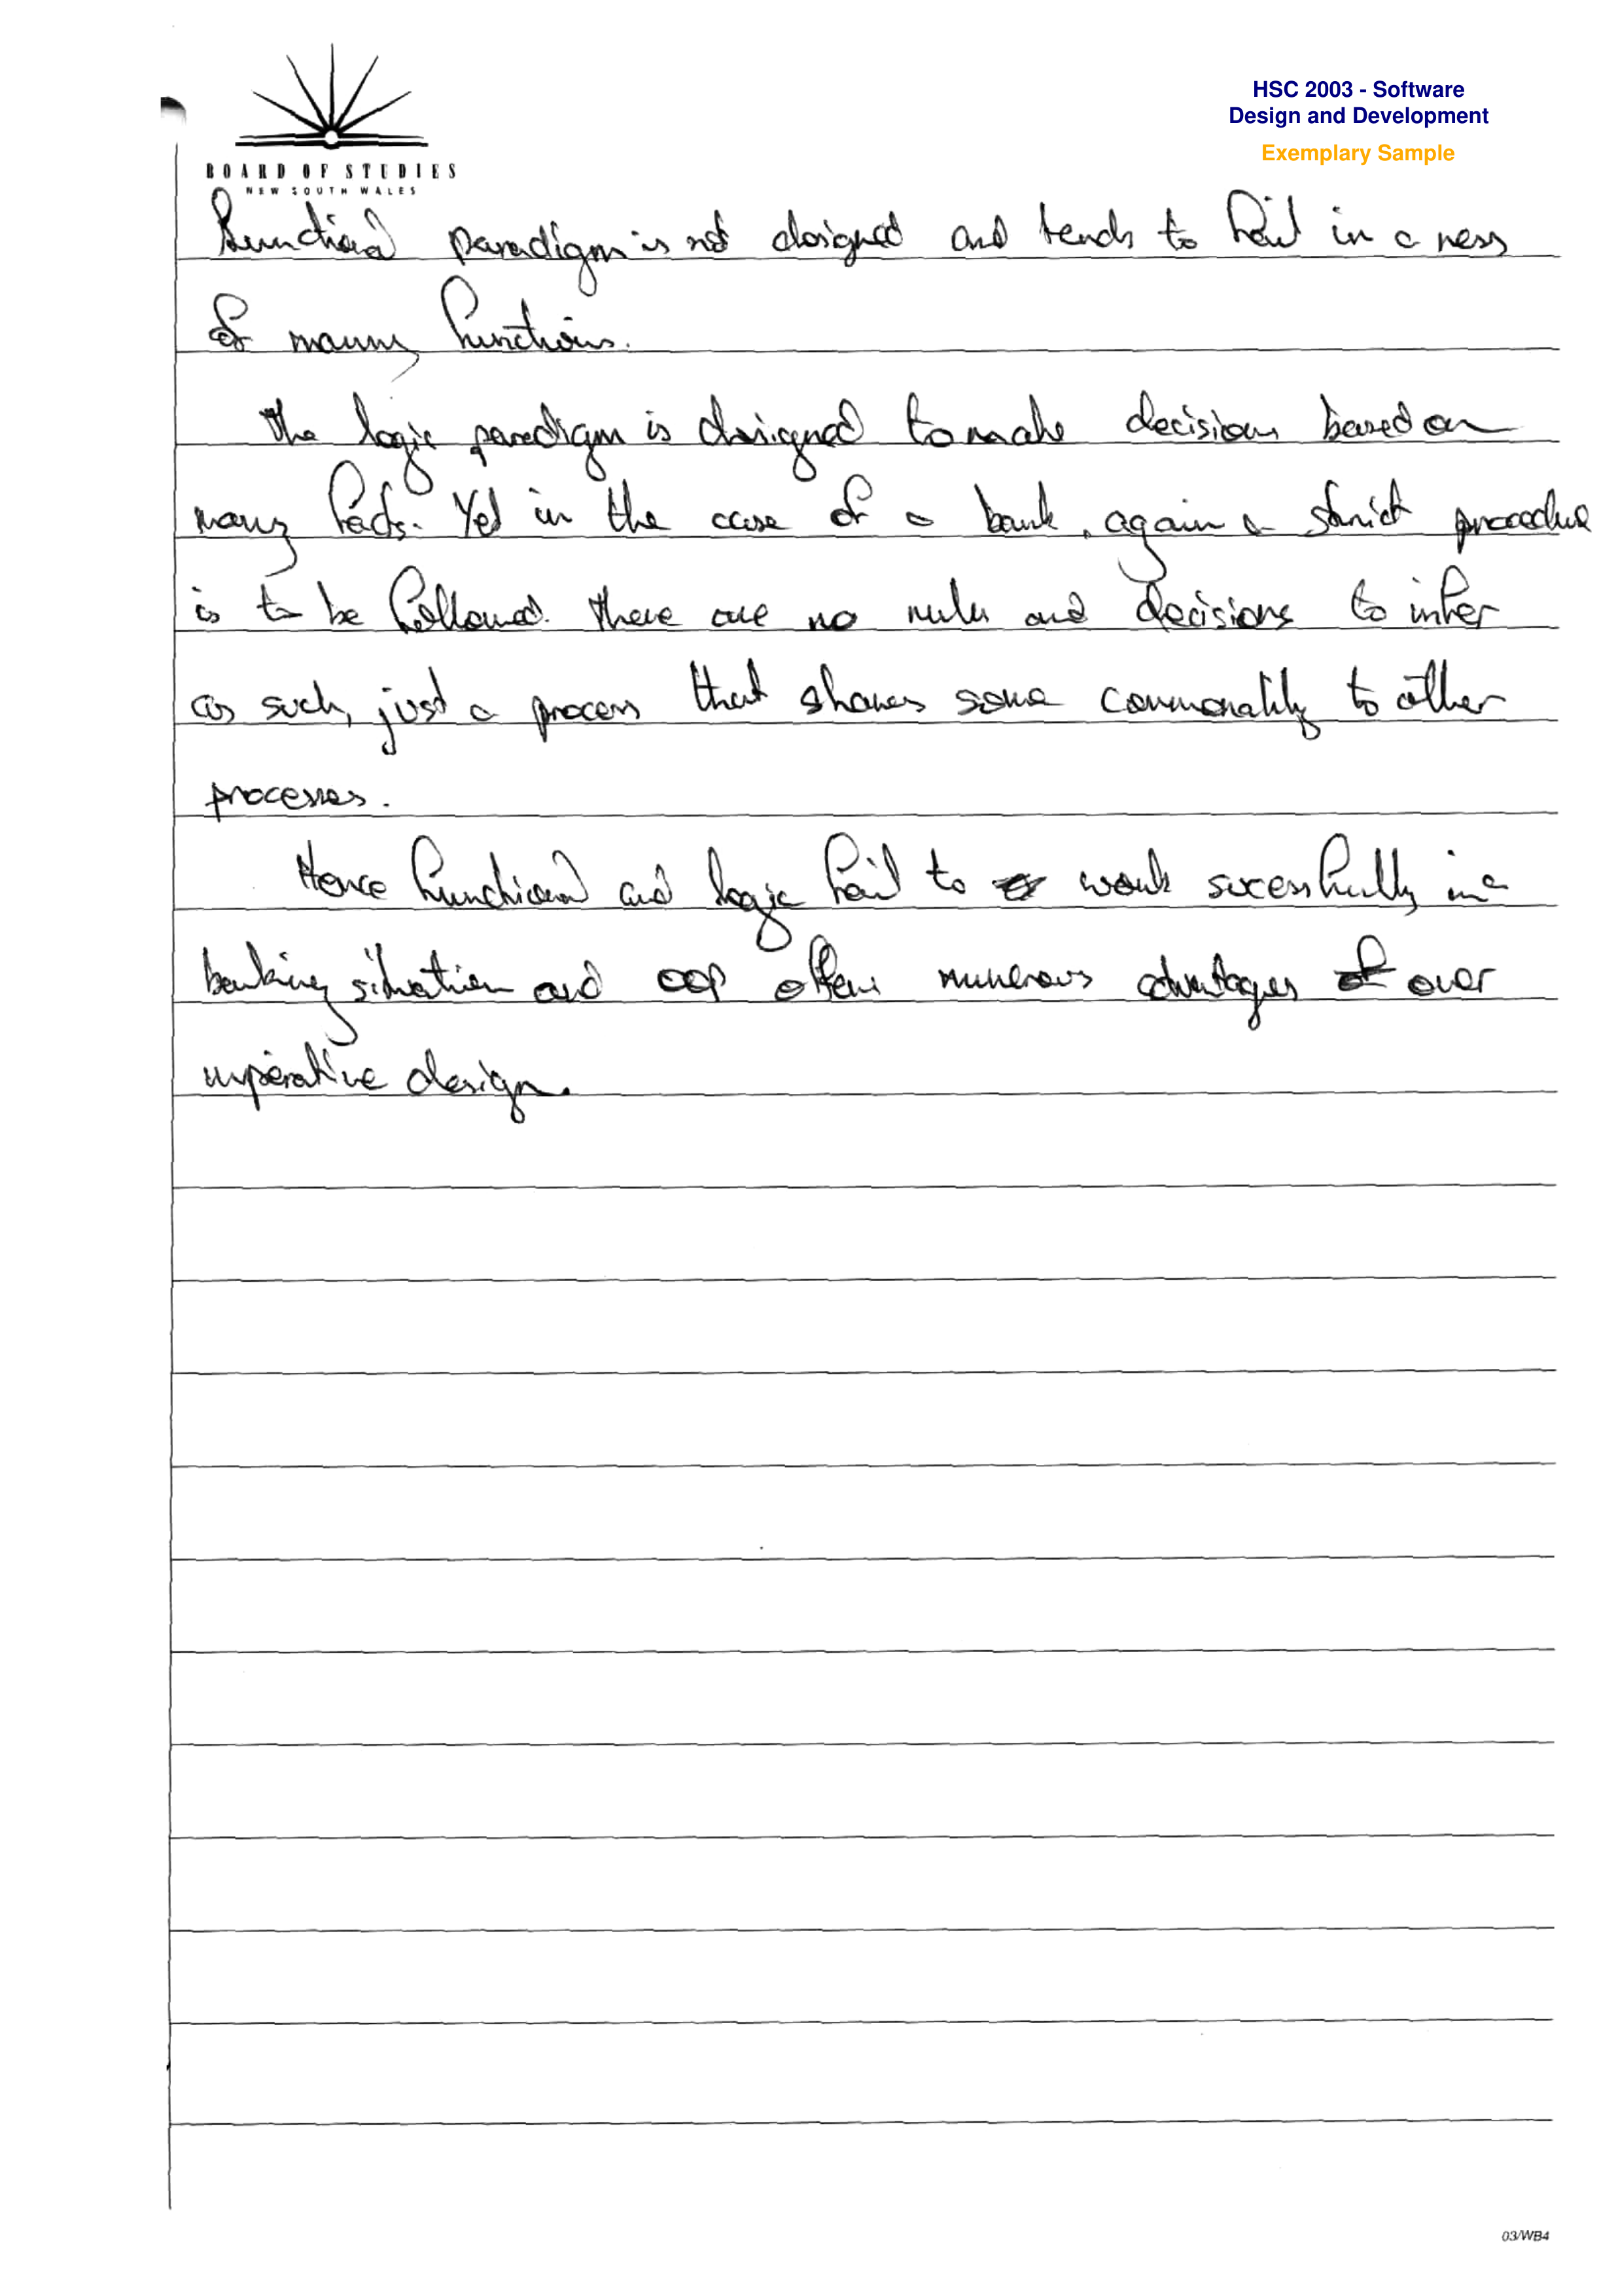 HSC 2003 - Software
Design and Development
Exemplary Sample
BOARD OF STUDIES
NEW SOUTH WALES
functional paradigm is not designed and tends to fail in a mess
of many functions.
The logic paradigm is designed to make decisions based on
many facts. Yet in the case of a bank, again a strict procedure
is to be followed. There are no rules and decisions to infer
as such, just a process that shares some commonality to other
processes.
Hence functional and logic fail to work sucessfully in a
banking situation and OOP offers numerous advantages over
imperative design.
03/WB4